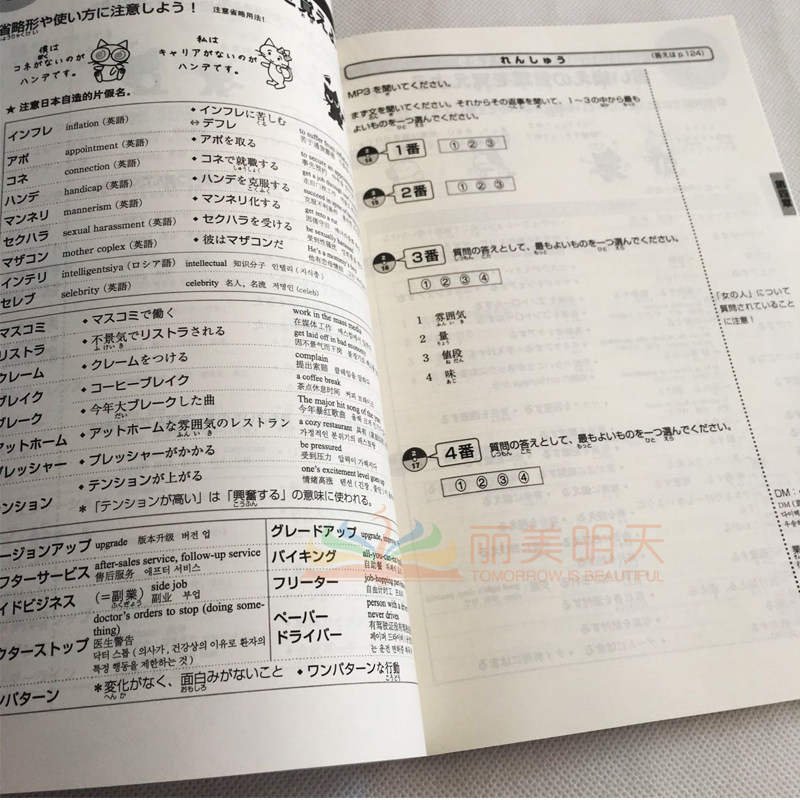 省略形や使い方に注意しよう！ 注意省略用法!
僕は
コネがないのが
ハンデです。
私は
キャリアがないのが
ハンデです。
★ 注意日本自造的片假名。
インフレ inflation (英語) ◆インフレに苦しむ
⇔ デフレ to suffer
アポ appointment (英語) ◆アポを取る
コネ connection (英語) ◆コネで就職する
ハンデ handicap (英語) ◆ハンデを克服する
マンネリ mannerism (英語) ◆マンネリ化する
セクハラ sexual harassment (英語) ◆セクハラを受ける
マザコン mother coplex (英語) ◆彼はマザコンだ
インテリ intelligentsiya (ロシア語) intellectual 知识分子 인텔리 (지식층)
セレブ selebrity (英語) celebrity 名人，名流 저명인 (celeb)
マスコミ ◆マスコミで働く work in the mass media
在媒体工作
リストラ ◆不景気でリストラされる get laid off in bad economy
レーム ◆クレームをつける complain
提出索赔
レイク ◆コーヒーブレイク a coffee break
茶点休息时间
レーク ◆今年大ブレークした曲 The major hit song of the
今年暴红歌曲
アットホーム ◆アットホームな雰囲気のレストラン a cozy restaurant
가정적인 분위기의 레스토랑
レッシャー ◆プレッシャーがかかる be pressured
受到压力
ンション ◆テンションが上がる one's excitement level goes up
情绪高涨
＊「テンションが高い」は「興奮する」の意味に使われる。
ージョンアップ upgrade 版本升级 버전 업
フターサービス after-sales service, follow-up service
售后服务 애프터 서비스
イドビジネス (＝副業) side job
副业 부업
クターストップ doctor's orders to stop (doing some-
thing)
医生警告
닥터 스톱 (의사가, 건강상의 이유로 환자의
특정 행동을 제한하는 것)
パターン ＊変化がなく、面白みがないこと ◆ワンパターンな行動
グレードアップ upgrade,
バイキング all-you-can-
自助餐
フリーター job-hopping
自由计时工
ペーパー
ドライバー person with a
never drives
れんしゅう (答えは p.124)
MP3 を聞いてください。
まず文を聞いてください。それからその返事を聞いて、1～3の中から最も
よいものを一つ選んでください。
1番 ① ② ③
2番 ① ② ③
3番 質問の答えとして、最もよいものを一つ選んでください。
① ② ③ ④
1 雰囲気
2 量
3 値段
4 味
「女の人」について
質問されていること
に注意！
2
17
4番 質問の答えとして、最もよいものを一つ選んでください。
① ② ③ ④
DM：
丽美明天
TOMORROW IS BEAUTIFUL